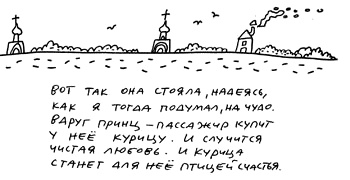 ВОТ ТАК ОНА СТОЯЛА, НАДЕЯСЬ,
КАК Я ТОГДА ПОДУМАЛ, НА ЧУДО.
ВДРУГ ПРИНЦ – ПАССАЖИР КУПИТ
У НЕЁ КУРИЦУ. И СЛУЧИТСЯ
ЧИСТАЯ ЛЮБОВЬ. И КУРИЦА
СТАНЕТ ДЛЯ НЕЁ ПТИЦЕЙ СЧАСТЬЯ.